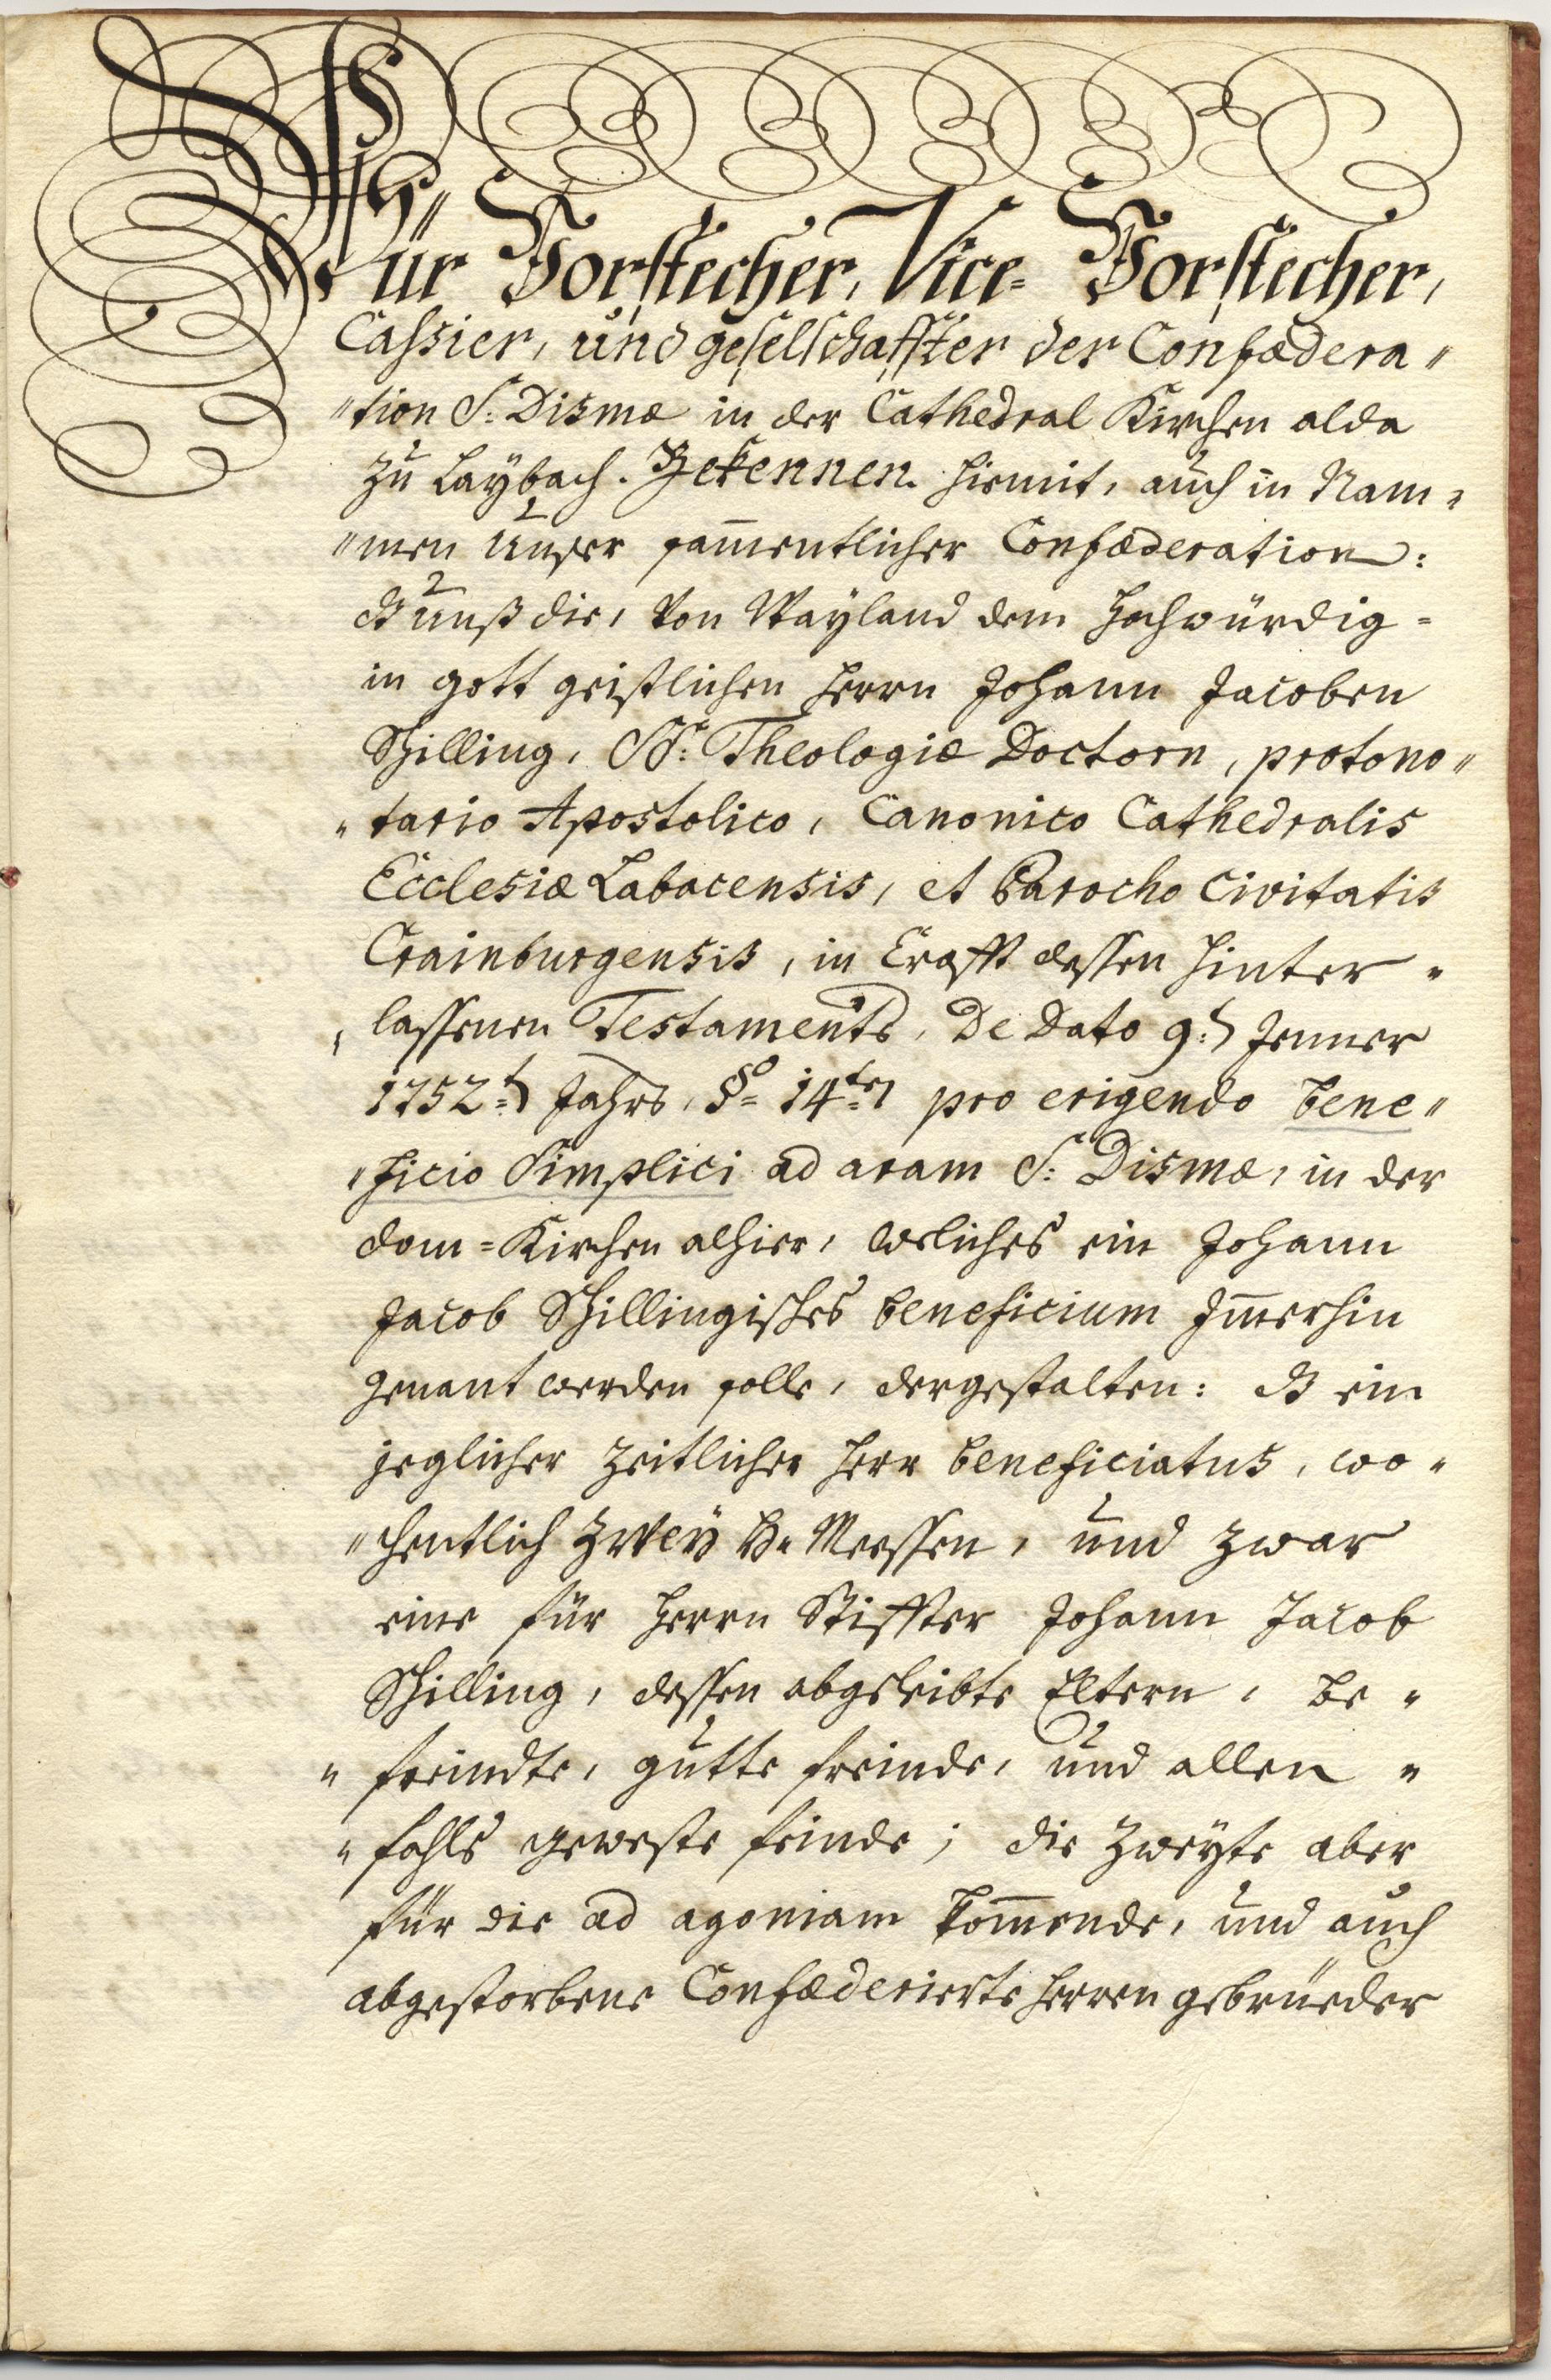 Wür Vorstecher, Vice= Vorstecher,
Cassier, und geselschaffter der Confædera〃
〃tion S: Dismæ in der Cathedral Kirchen alda
zu Laybach. Bekennen hiemit, auch in Nam〃
〃men Unser sam̄entlicher Confæderation:
dß unß die, Von Wayland dem hochwürdig=
in gott geistlichen herrn Johann Jacoben
Schilling, SS: Theologiæ Doctorn, protono〃
〃tario Apostolico, Canonico Cathedralis
Ecclesiæ Labacensis, et Parocho Civitatis
Crainburgensis, in Crafft dessen hinter〃
lassenen Testaments, De Dato 9:t Jenner
1752:t Jahrs, §o= 14ten pro erigendo bene〃
〃ficio Simplici ad aram S: Dismæ, in der
dom=Kirchen alhier, welches ein Johann
Jacob Schillingisches beneficium Im̄erhin
genant werden solle, dergestalten: dß ein
jeglicher zeitlicher herr beneficiatus, wo〃
〃chentlich zwey H: Meessen, und zwar
eine für herrn Stiffter Johann Jacob
Schilling, dessen abgeleibte Eltern, be〃
〃freindte, gutte freinde, und allen〃
〃fahls geweste feinde; die zweyte aber
für die ad agoniam kom̄ende, und auch
abgestorbene Confæderierte herren gebrüeder